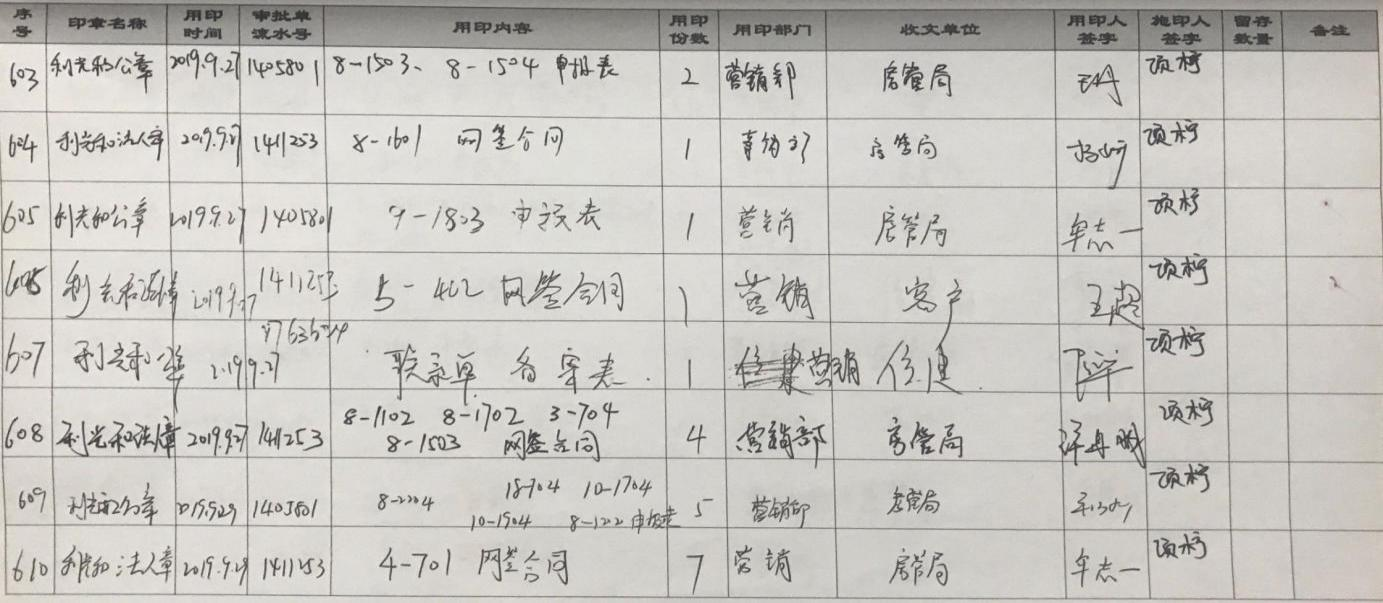 序号 印章名称 用印时间 审批单流水号 用印内容 用印份数 用印部门 收文单位 用印人签字 施印人签字 留存数量 备注
603 利光和公章 2019.9.27 1405801 8-1503、8-1504 申报表 2 营销部 房管局 项柠
604 利光和法人章 2019.9.27 1411253 8-1601 网签合同 1 营销部 房管局 项柠
605 利光和公章 2019.9.27 1405801 9-1803 申报表 1 营销 房管局 牟志一 项柠
606 利光和法人章 2019.9.27 1411253 5-402 网签合同 1 营销 客户 王超 项柠
607 利光和公章 2019.9.27 联系单 备案表 1 营销 住建 项柠
608 利光和法人章 2019.9.27 1411253 8-1102 8-1702 3-704 8-1503 网签合同 4 营销部 房管局 项柠
609 利光和公章 2019.9.29 1405801 8-2204 18-704 10-1704 10-1504 8-1202 申报表 5 营销部 房管局 项柠
610 利光和法人章 2019.9.29 1411253 4-701 网签合同 7 营销 房管局 牟志一 项柠